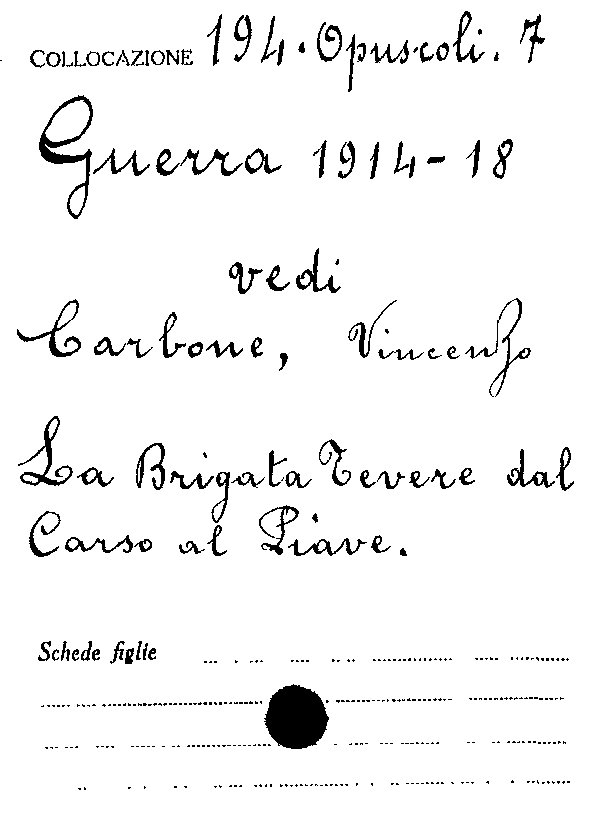 COLLOCAZIONE 194. Opuscoli. 7
Guerra 1914-18
vedi
Carbone, Vincenzo
La Brigata Tevere dal
Carso al Piave.
Schede figlie